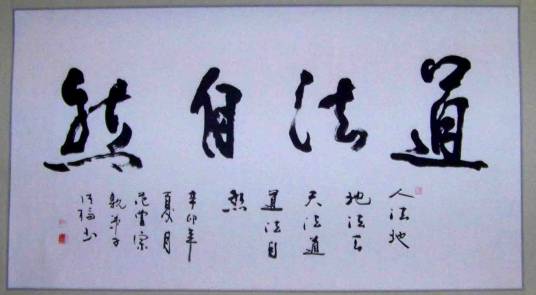 道法自然
人法地
地法天
天法道
道法自
然
辛卯年
夏月
范曾宗
親弟子